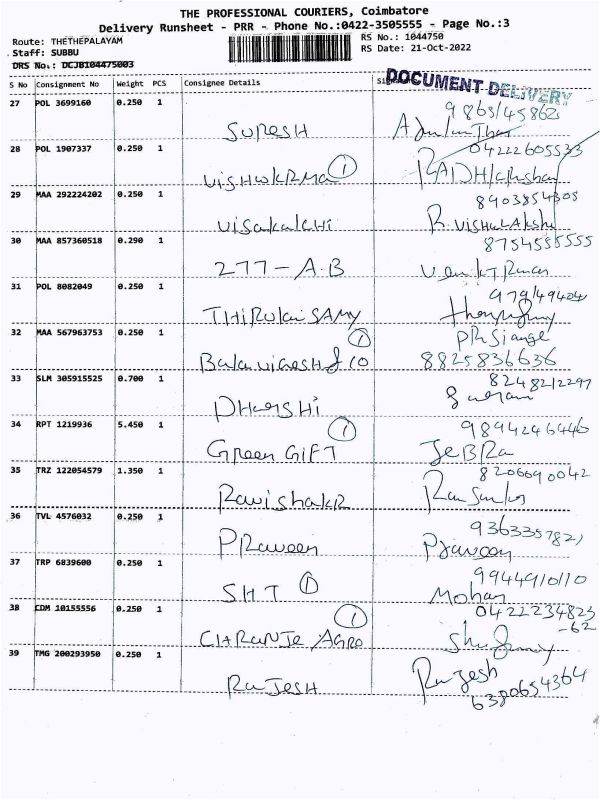 THE PROFESSIONAL COURIERS, Coimbatore
Delivery Runsheet - PRR - Phone No.:0422-3505555 - Page No.:3
Route: THETHEPALAYAM RS No.: 1044750
Staff: SUBBU RS Date: 21-Oct-2022
DRS No.: DCJB104475003
DOCUMENT DELIVERY
S No Consignment No Weight PCS Consignee Details
27 POL 3699160 0.250 1
9865145862
SURESH
28 POL 1907337 0.250 1
04222605533
VISHWKRMA 1 RADHAkrishan
29 MAA 292224202 0.250 1
8903854305
Visakalchi R. VISHALAkshi
30 MAA 857360518 0.290 1
8754555555
277-A.B
31 POL 8082049 0.250 1
979149404
THIRUMAISAMY
32 MAA 567963753 0.250 1
1
BalaVignesh & CO 8825836636
33 SLM 305915525 0.700 1
8248212297
DHARSHI
34 RPT 1219936 5.450 1
1 9894246446
Green GIFT JeBRa
35 TRZ 122054579 1.350 1
8206690042
Ravishakr
36 TVL 4576032 0.250 1
9363357821
PRaveen Praveen
37 TRP 6839600 0.250 1
9944910110
SHT 1 Mohan
38 CDM 10155556 0.250 1
1 0422234823
-62
CHRANJE AGRO
39 TMG 200293950 0.250 1
RaJESH Rajesh
6380654364